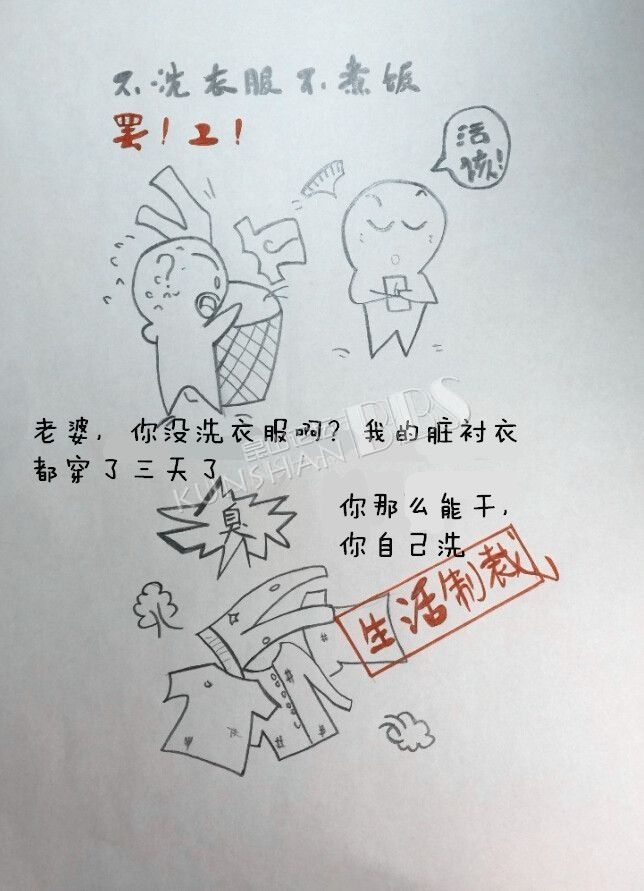 不洗衣服不煮饭
罢！工！
活
该！
老婆，你没洗衣服啊？我的脏衬衣
都穿了三天了
KUNSHAN BBS
臭
你那么能干，
你自己洗
生活制裁